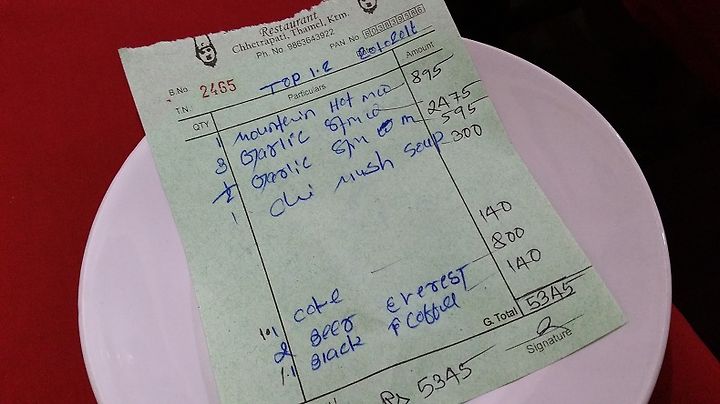 Restaurant
Chhetrapati, Thamel, Ktm.
Ph. No 9863643922
PAN No
B.No. 2465
TOP 1.2
T.N.
QTY. Particulars Amount
1 Mountain Hot 895
3 Garlic 2475
Garlic 595
1 Chi Mush Soup 300
1+1 Coke 140
2 Beer Everest 800
1.1 Black Coffee 140
G. Total 5345
Signature
Rs 5345